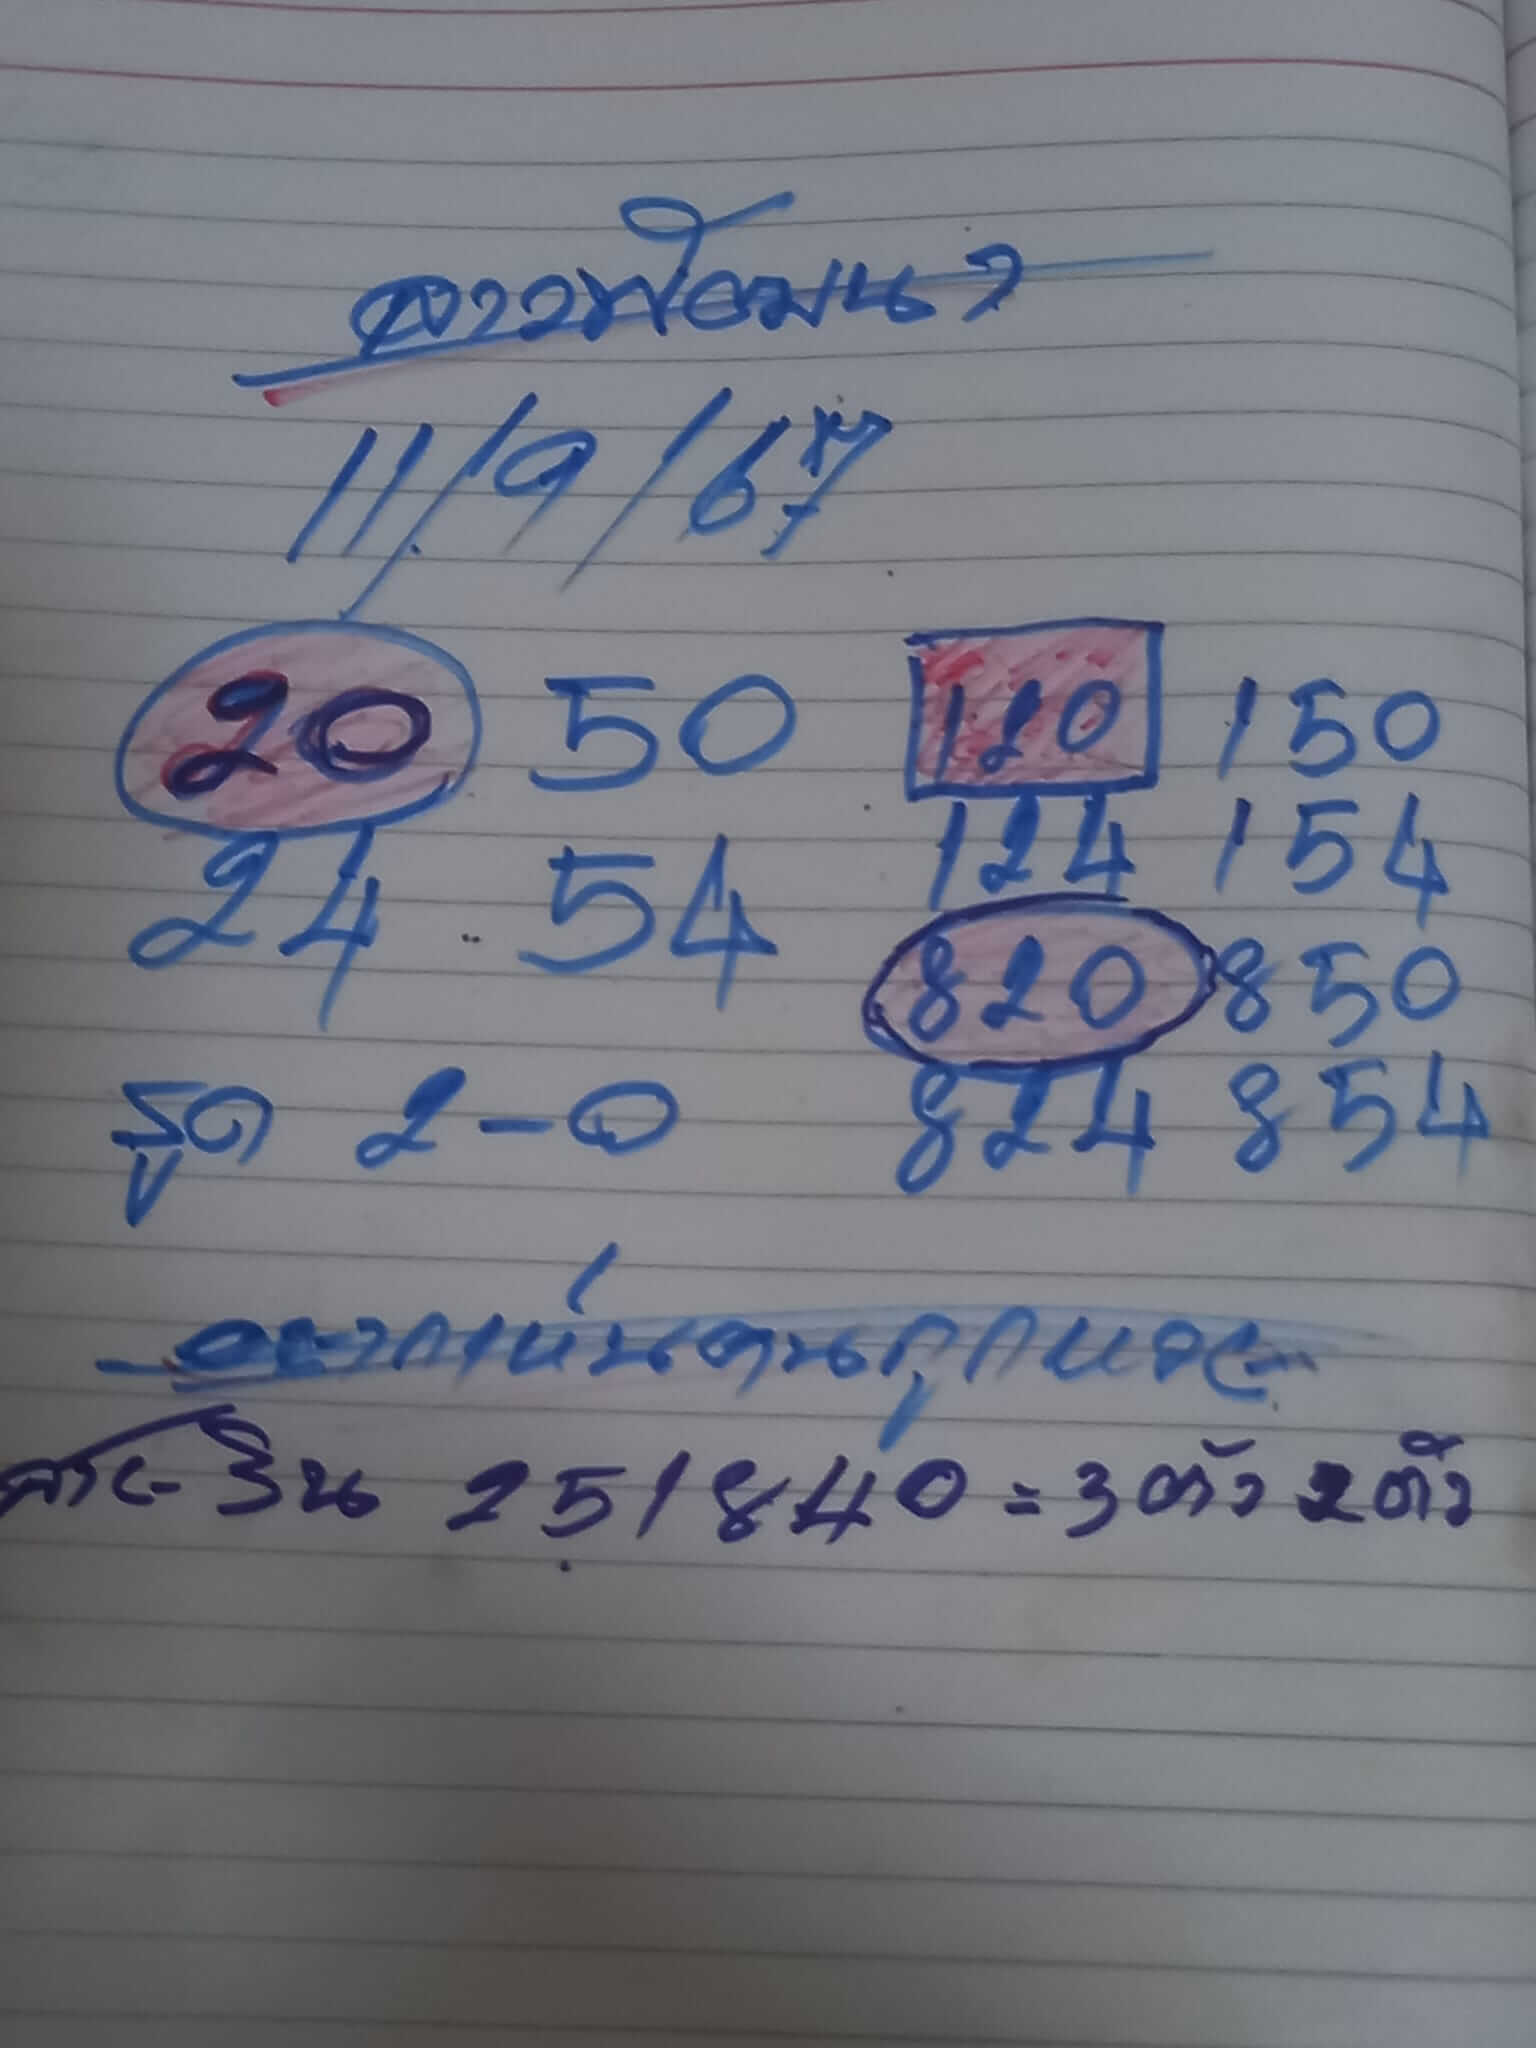 ลาวพัฒนา
11/9/67
20 50 120 150
24 54 124 154
820 850
รูด 2-0 824 854
25 1 840 = 3 ตัว 2 ตัว